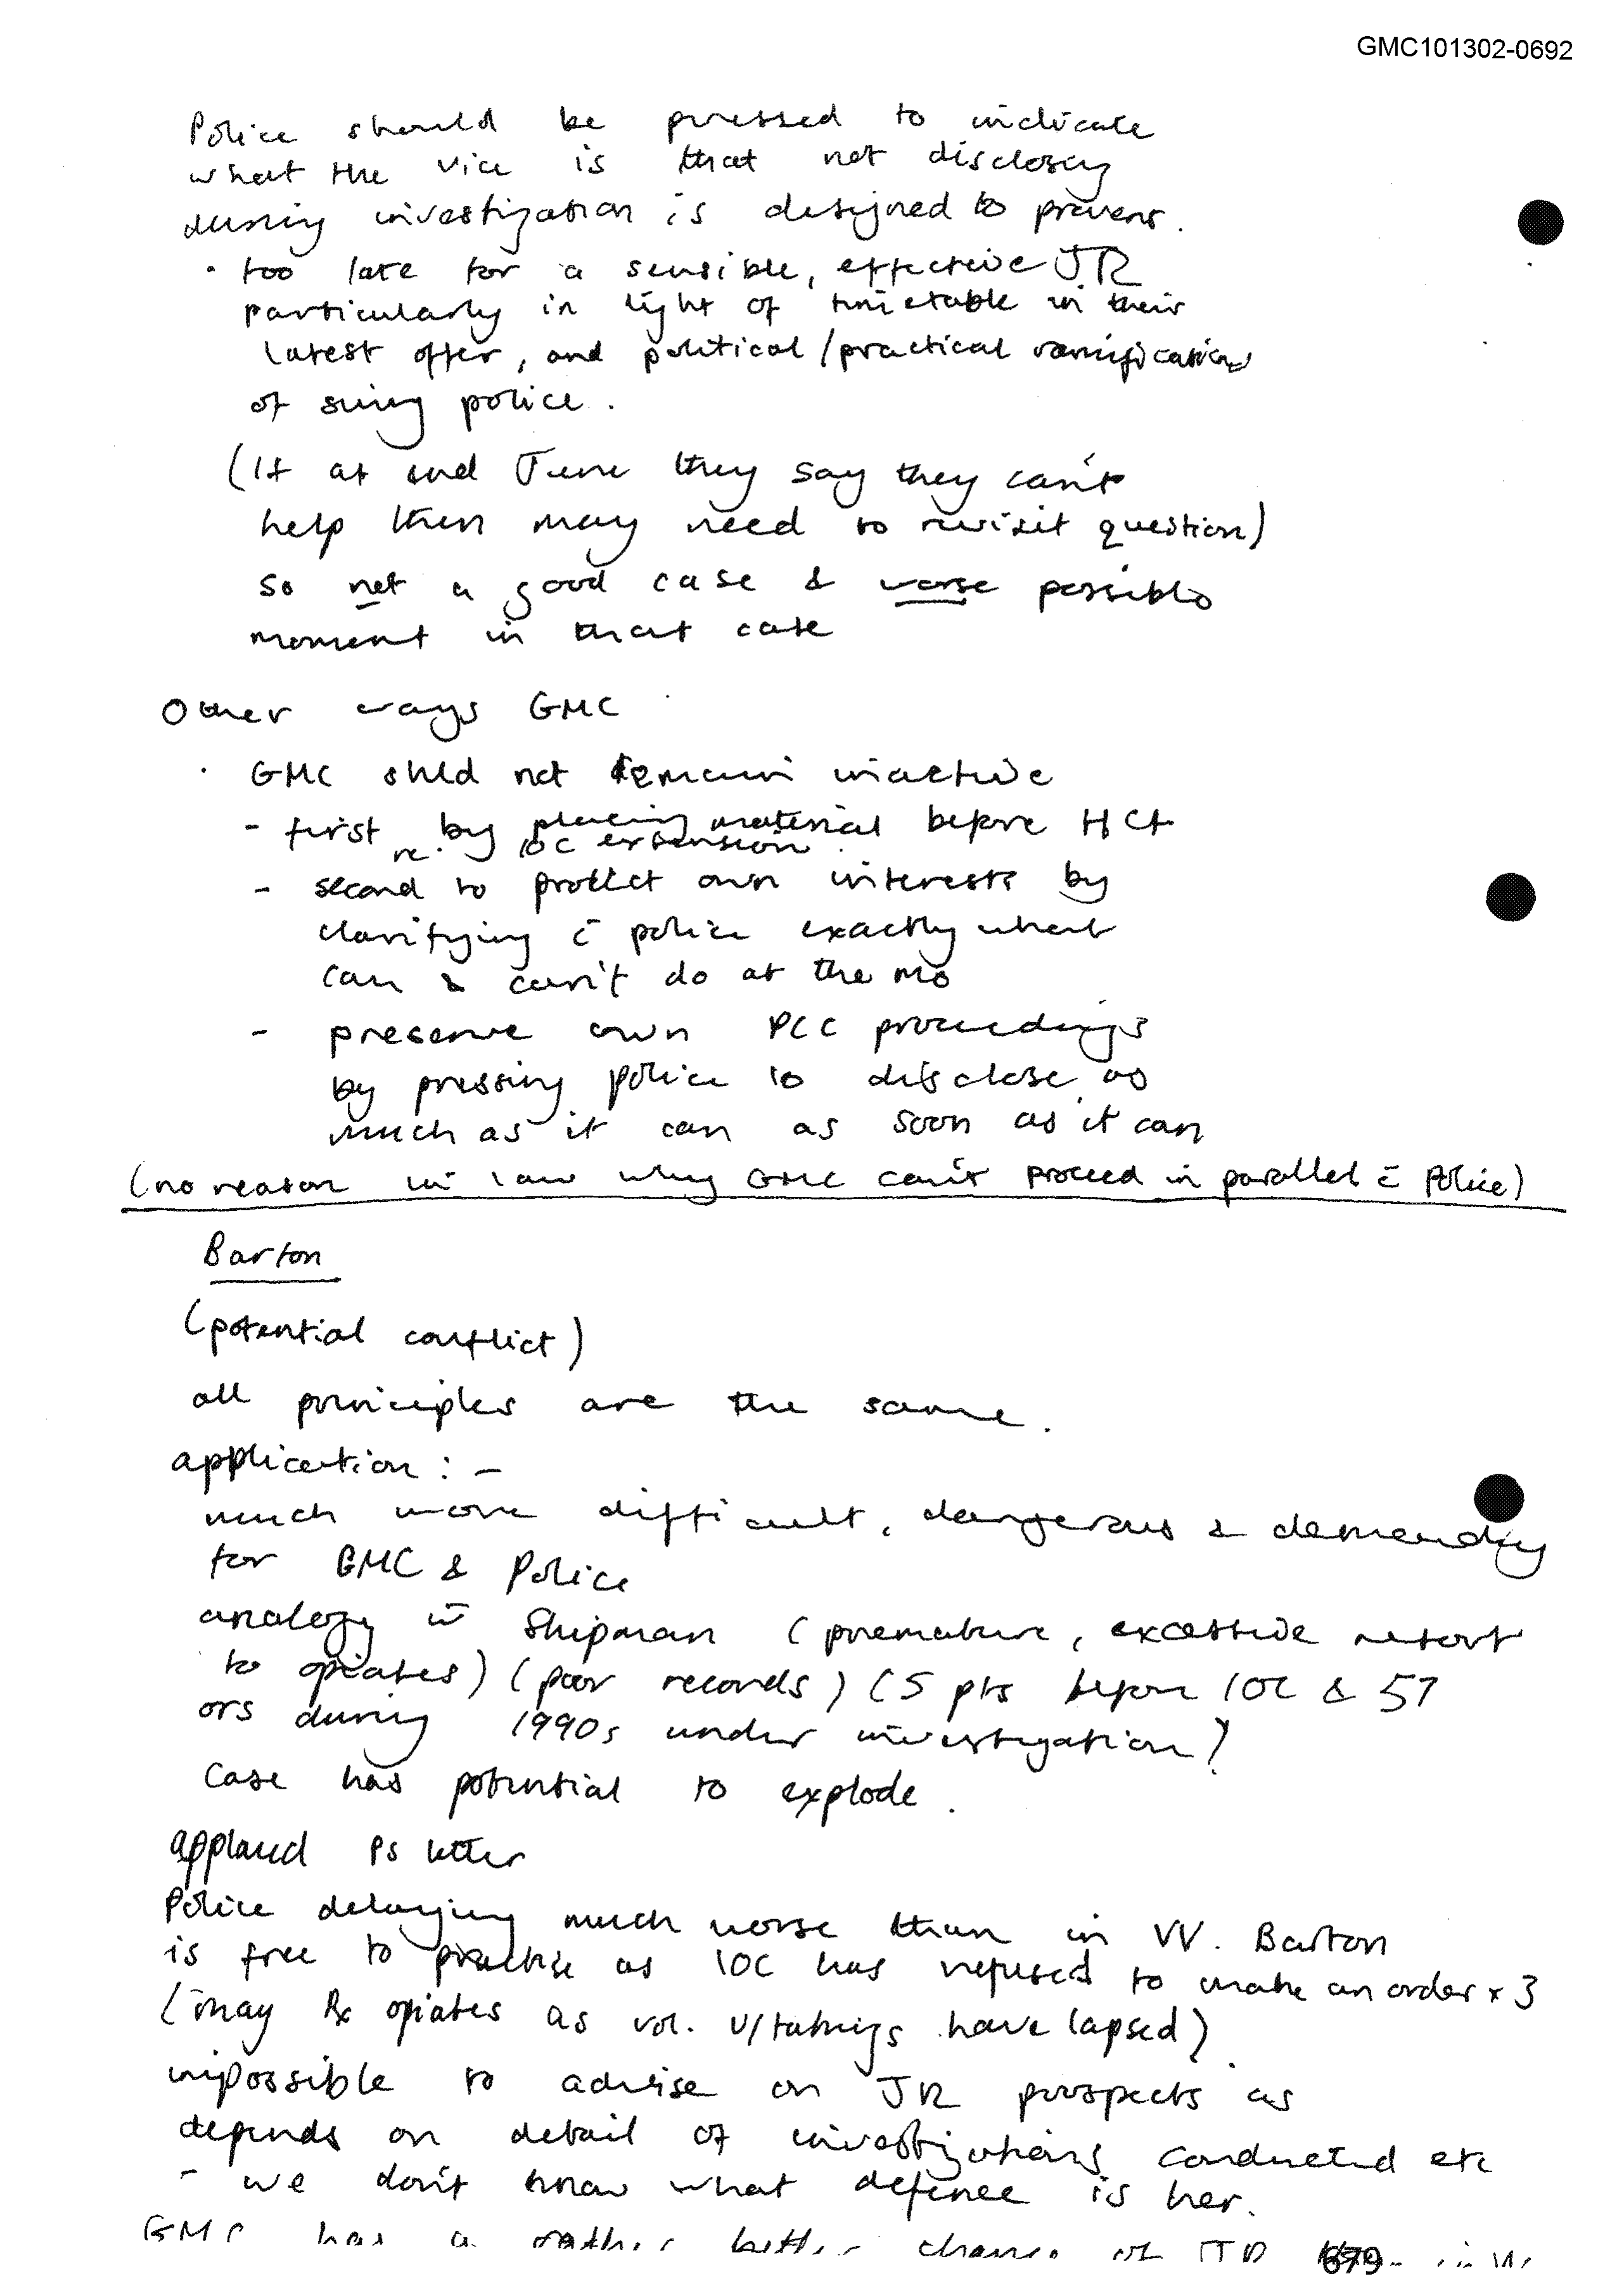 GMC101302-0692
Police should be pressed to indicate
what the vice is that not disclosing
during investigation is designed to prevent.
· too late for a sensible, effective JR
particularly in light of timetable in their
latest offer, and political/practical ramifications
of suing police.
(If at end June they say they can't
help then may need to revisit question)
so not a good case & worse possible
moment in that case
Other ways GMC
· GMC shld not remain inactive
- first by placing material before HCt
re. IOC extension.
- second to protect own interests by
clarifying c̄ police exactly what
can & can't do at the mo
- preserve own PCC proceedings
by pressing police to disclose as
much as it can as soon as it can
(no reason in law why GMC can't proceed in parallel c̄ Police)
Barton
(potential conflict)
all principles are the same.
application: -
much more difficult, dangerous & demanding
for GMC & Police
analogy w̄ Shipman (premature, excessive resort
to opiates) (poor records) (5 pts before IOC & 57
ors during 1990s under investigation)
Case has potential to explode.
applaud Ps letter
Police delaying much worse than in VV. Barton
is free to practise as IOC has refused to make an order x 3
(may Rx opiates as vol. u/takings have lapsed).
impossible to advise on JR prospects as
depends on detail of investigations conducted etc
- we don't know what defence is her.
GMC has a rather better chance of
679